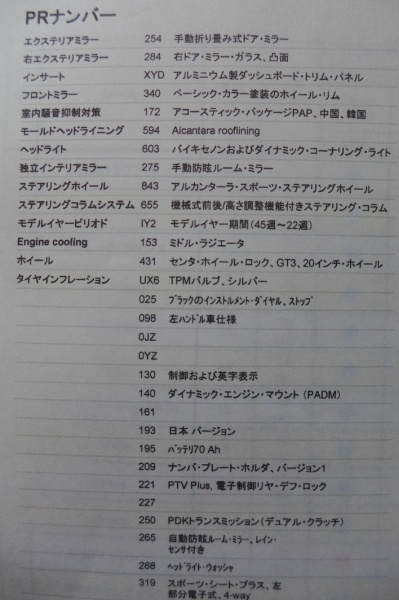 PRナンバー
エクステリアミラー 254 手動折り畳み式ドア・ミラー
右エクステリアミラー 284 右ドア・ミラー・ガラス、凸面
インサート XYD アルミニウム製ダッシュボード・トリム・パネル
フロントミラー 340 ベーシック・カラー塗装のホイール・リム
室内騒音抑制対策 172 アコースティック・パッケージPAP、中国、韓国
モールドヘッドライニング 594 Alcantara rooflining
ヘッドライト 603 バイキセノンおよびダイナミック・コーナリング・ライト
独立インテリアミラー 275 手動防眩ルーム・ミラー
ステアリングホイール 843 アルカンターラ・スポーツ・ステアリングホイール
ステアリングコラムシステム 655 機械式前後/高さ調整機能付きステアリング・コラム
モデルイヤーピリオド IY2 モデルイヤー期間(45週~22週)
Engine cooling 153 ミドル・ラジエータ
ホイール 431 センタ・ホイール・ロック、GT3、20インチ・ホイール
タイヤインフレーション UX6 TPMバルブ、シルバー
025 ブラックのインストルメント・ダイヤル、ストップ
098 左ハンドル車仕様
0JZ
0YZ
130 制御および英字表示
140 ダイナミック・エンジン・マウント (PADM)
161
193 日本 バージョン
195 バッテリ70 Ah
209 ナンバ・プレート・ホルダ、バージョン1
221 PTV Plus, 電子制御リヤ・デフ・ロック
227
250 PDKトランスミッション(デュアル・クラッチ)
265 自動防眩ルーム・ミラー、レイン・
センサ付き
288 ヘッドライト・ウォッシャ
319 スポーツ・シート・プラス、左
部分電子式、4-way